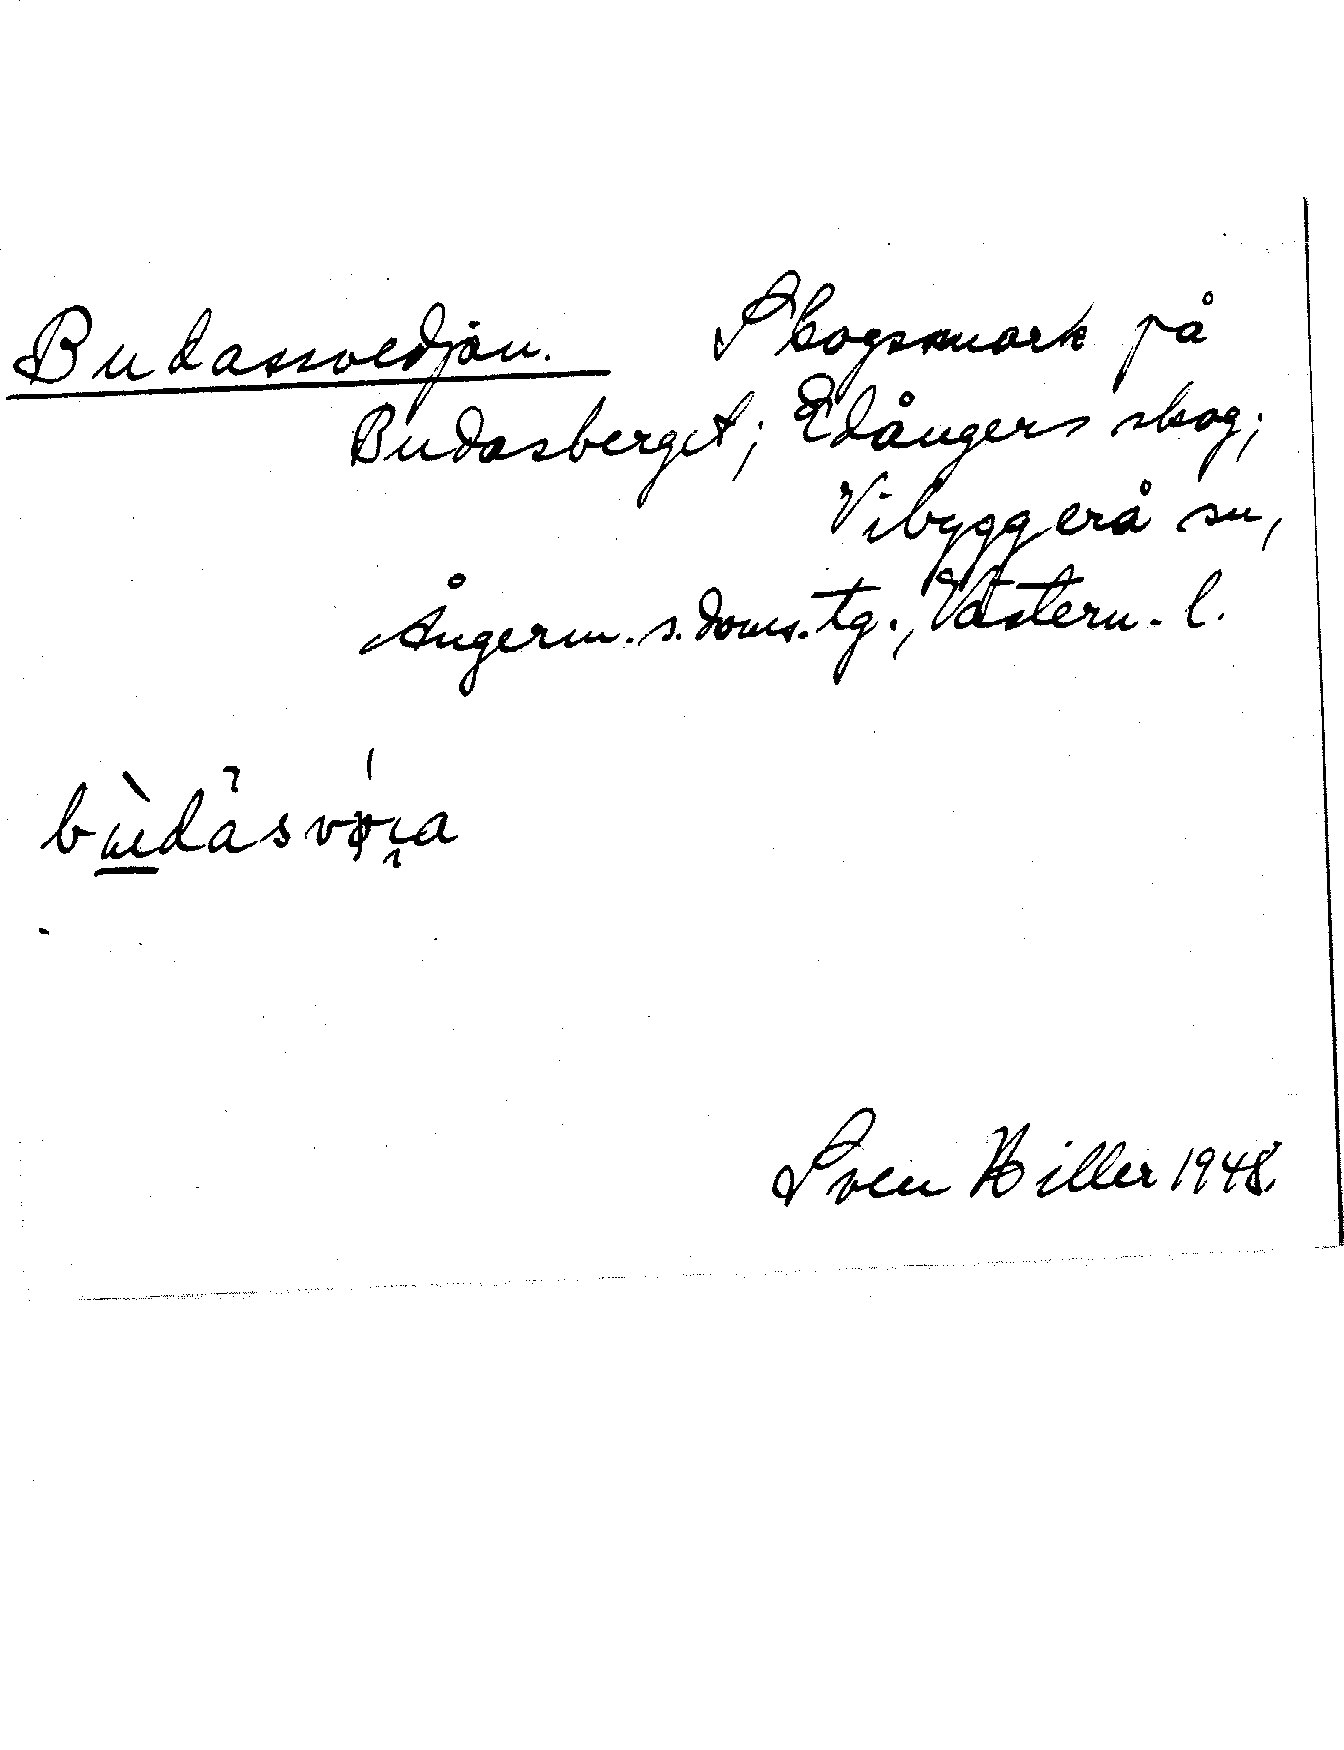 Budassvedjan. Skogsmark på
Budasberget; Edångers skog;
Vibyggerå sn,
Ångerm. s. doms. tg., Västern. l.
Sven Hiller 1948.